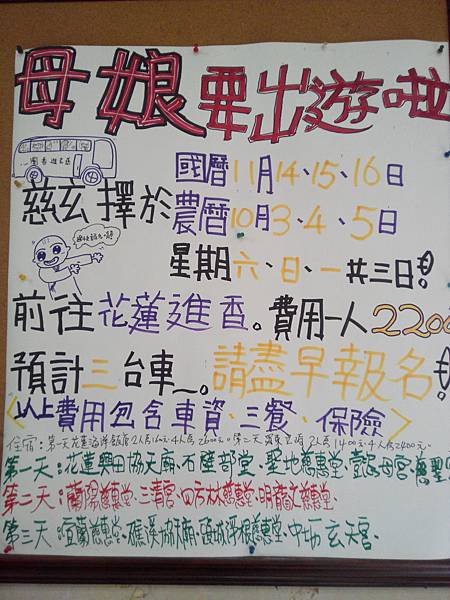 母娘要出遊啦
國曆11月14、15、16日
慈玄擇於農曆10月3、4、5日
星期六、日、一共三日!
前往花蓮進香。費用一人2200
預計三台車~。請盡早報名!
<以上費用包含車資、三餐、保險>
住宿:第一天花蓮海洋飯店2人房1600元.4人房2600元。第二天 2人房1400元.4人房2400元.
第一天:花蓮興田協天廟、石壁部堂、聖地慈惠堂、母宮、慈聖
第二天:蘭陽慈惠堂、三清宮、四方林慈惠堂、明龍文慈惠堂、
第三天:宜蘭慈惠堂、礁溪協天廟、頭城淨根慈惠堂、中坜玄天宮.